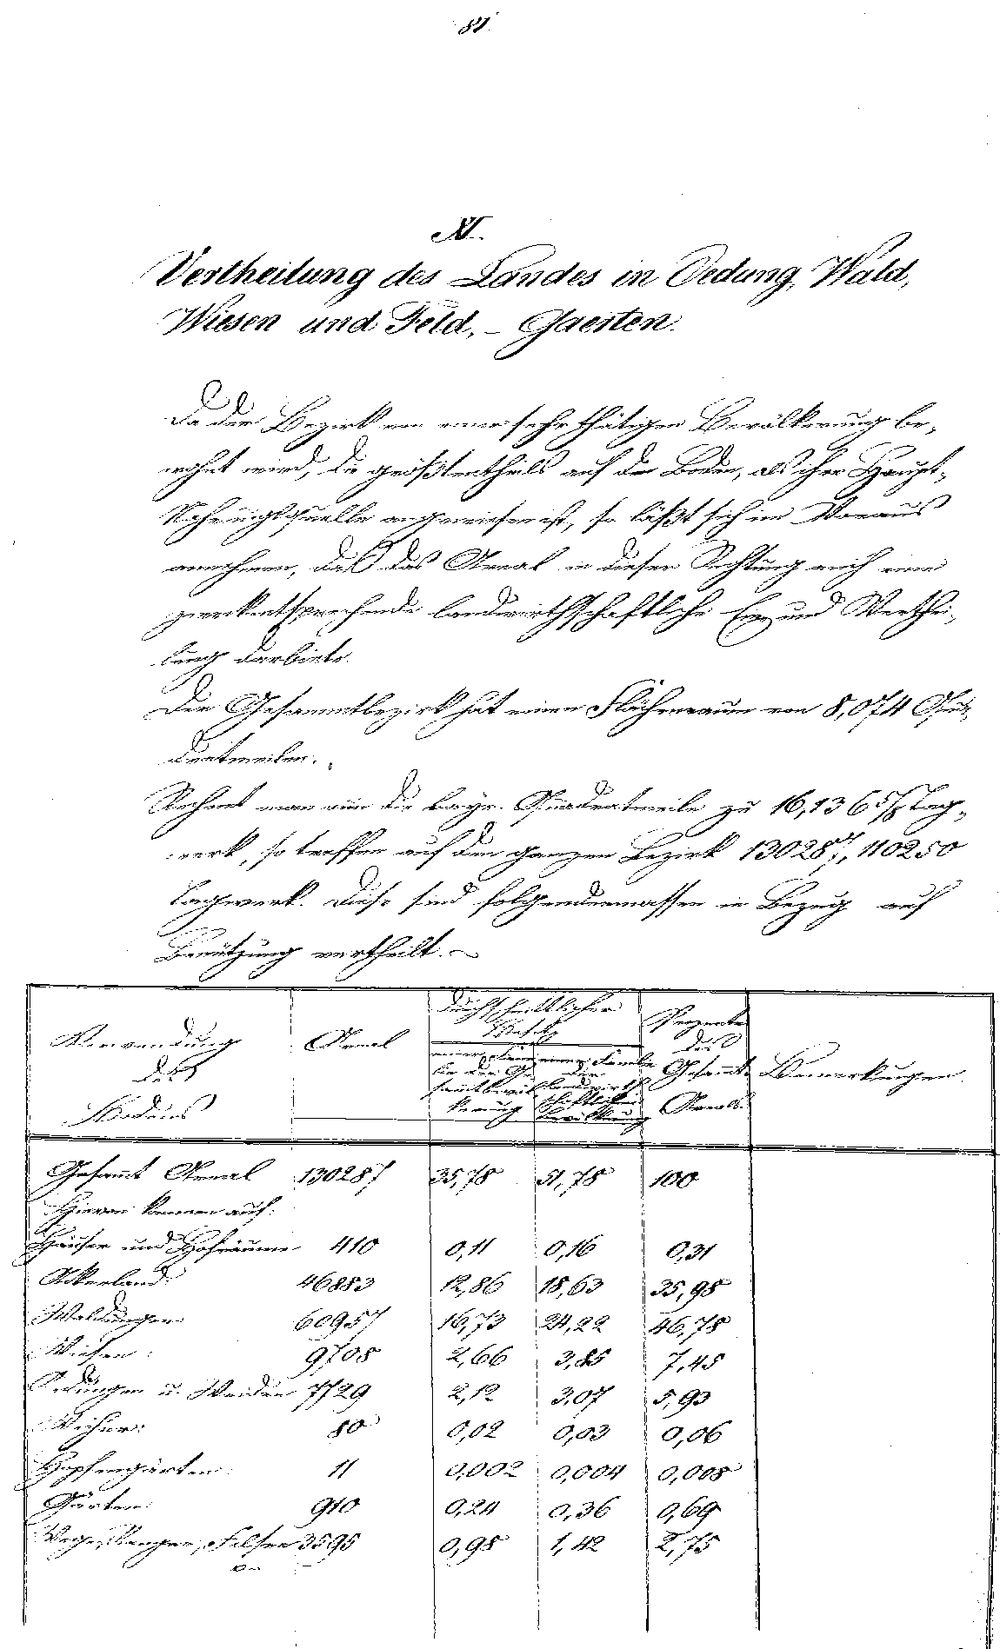 87.
XI.
Vertheilung des Landes in Oedung, Wald,
Wiesen und Feld, – Gaerten.
Da der Bezirk von einer sehr thätigen Bevölkerung be-
wohnt wird, die größtentheils auf den Boden, als ihre Haupt-
Nahrungsquelle angewiesen ist, so läßt sich im Voraus
annehmen, daß das Areal in dieser Richtung auch eine
zweckentsprechende landwirthschaftliche Ein und Verthei-
lung darbiete.
Der Gesammtbezirk hat einen Flächenraum von 8,074 Qua-
dratmeilen.
Rechnet man nun die bayr. Quadratmeile zu 16,136 Tag-
werk, so treffen auf den ganzen Bezirk 130287, 110250
Tagwerk. Diese sind folgendermassen in Bezug auf
Benützung vertheilt. –
Verwendung des Bodens | Areal | durchschnittlicher Besitz | einer Familie der Gesammtbevölkerung | einer Familie der landwirthschaftlichen Bevölkerung | Prozente des Gesammt Areals. | Bemerkungen.
Gesammt Areal 130287 35,78 51,78 100
Hievon kommen auf:
Häuser und Hofräume 410 0,11 0,16 0,31
Ackerland: 46883 12,86 18,63 35,98
Waldungen 60957 16,73 24,22 46,78
Wiesen: 9708 2,66 3,85 7,45
Oedungen u. Weiden 7729 2,12 3,07 5,93
Weiher: 80 0,02 0,03 0,06
Hopfengärten: 11 0,002 0,004 0,008
Gärten: 910 0,24 0,36 0,69
Wege, Ranger, Felsen 3595 0,98 1,42 2,75